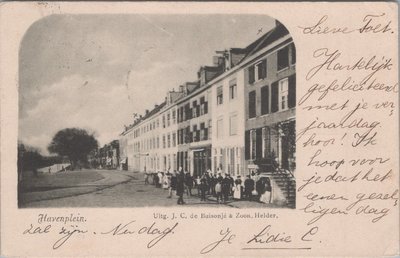 Lieve Toet.
Hartelijk
gefeliciteerd
met je ver-
jaardag
hoor! Ik
hoop voor
je dat het
een gezel-
ligen dag
Havenplein.
Uitg. J. C. de Buisonjé & Zoon, Helder.
zal zijn. Nu dag. Je Lidie C.